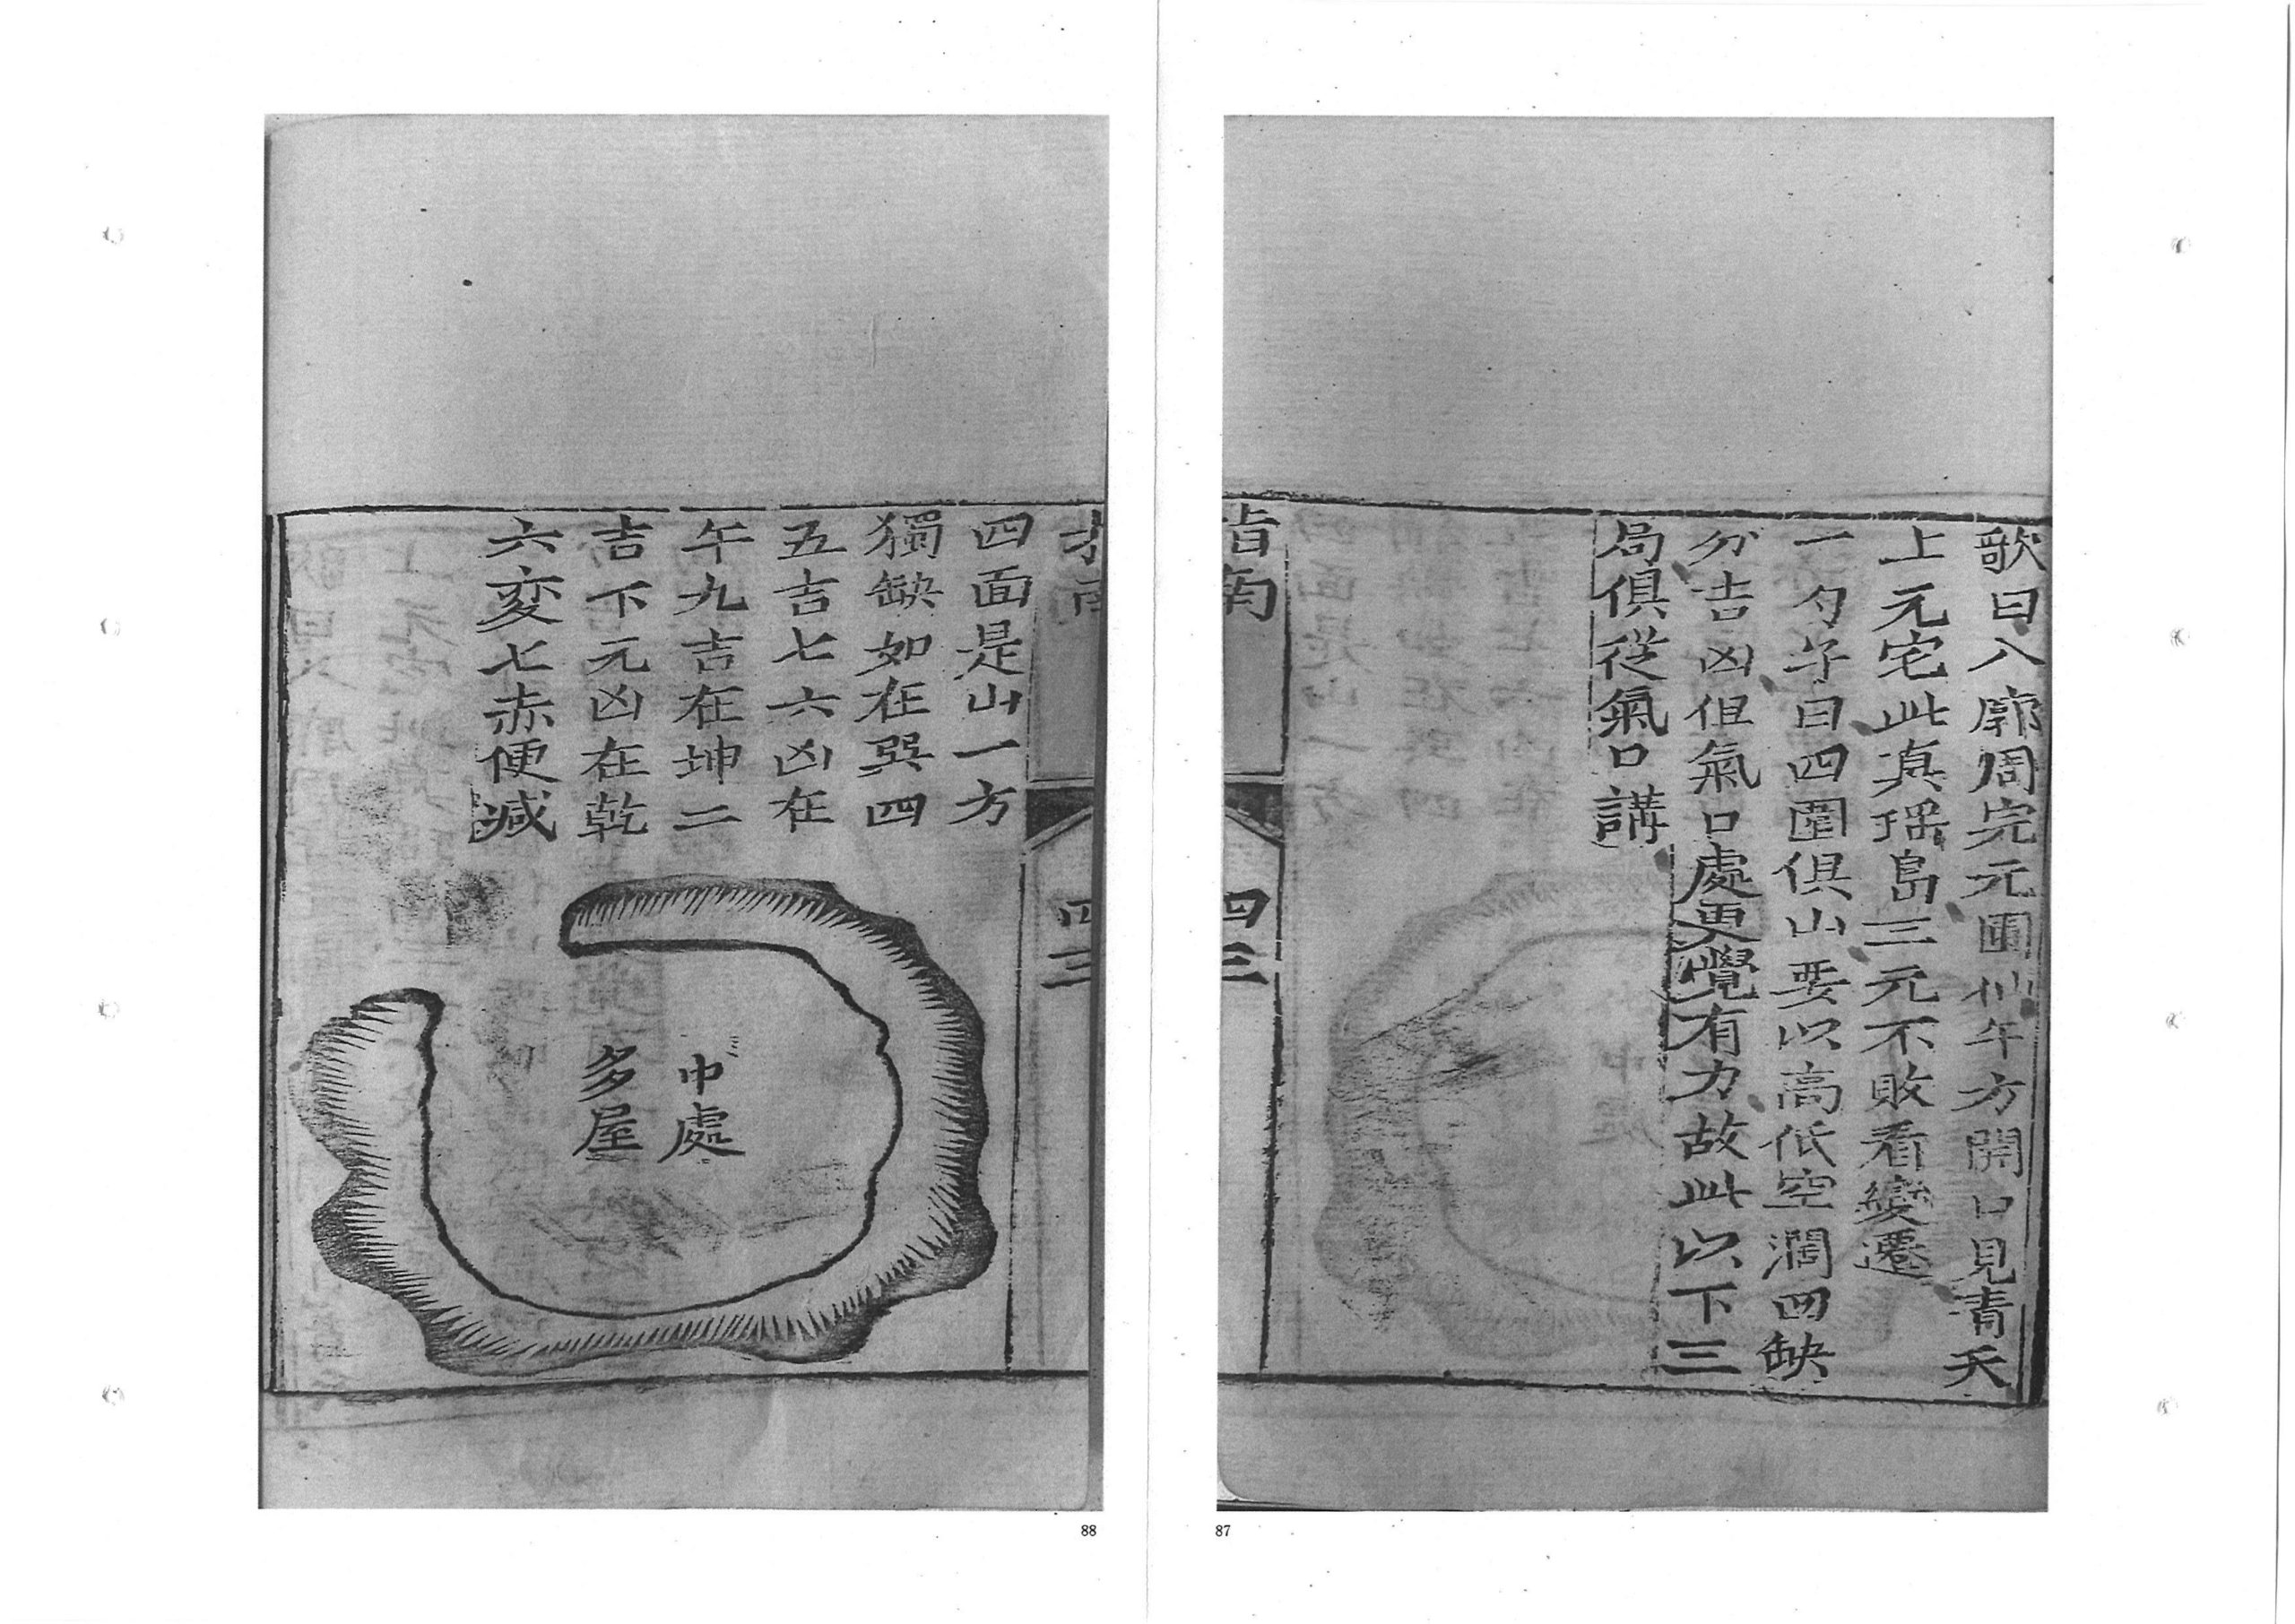 歌曰八廓周完元圃仙午方開口見青天
上元宅此真瑶島三元不敗看變遷
一勺子曰四圍俱山要以高低空濶凹缺
分吉凶但氣口處更覺有力故此以下三
局俱從氣口講
指南
四三
87
四三
四面是山一方
獨缺如在巽四
五吉七六凶在
午九吉在坤二
吉下元凶在乾
六変七赤便减
中處
多屋
88